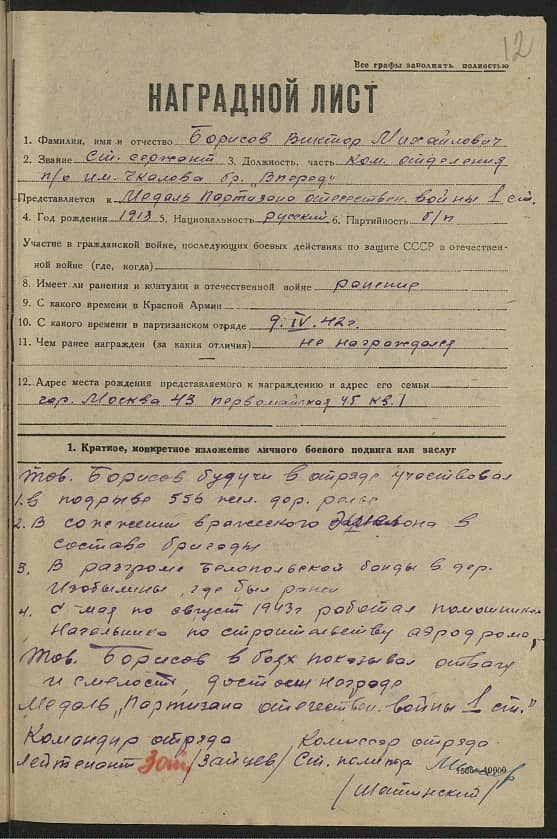 12
Все графы заполнать полностью
НАГРАДНОЙ ЛИСТ
1. Фамилия, имя и отчество Борисов Виктор Михайлович
2. Звание Ст. сержант 3. Должность, часть Ком. отделения
п/о им. Чкалова бр. "Вперед"
Представляется к Медаль Партизана отечествен. войны 1 ст.
4. Год рождения 1913 5. Национальность русский 6. Партийность б/п
Участие в гражданской войне, последующих боевых действиях по защите СССР в отечествен-
ной войне (где, когда)
8. Имеет ли ранения и контузии в отечественной войне ранение
9. С какого времени в Красной Армии
10. С какого времени в партизанском отряде 9. IV. 42г.
11. Чем ранее награжден (за какия отличия) не награждался
12. Адрес места рождения представляемого к награждению и адрес его семьи
гор. Москва 43 первомайская 45 кв. 1
1. Краткое, конкретное изложение личного боевого подвига или заслуг
Тов. Борисов будучи в отряде участвовал
1. в подрыве 556 жел. дор. рельс
2. В сожжении вражеского в
составе бригады
3. В разгроме Белопольской банды в дер.
Изобылины, где был ранен
4. С мая по август 1943г работал помошником
Начальника по строительству аэродрома,
Тов. Борисов в боях показывал отвагу
и смелость, достоин награде
Медаль "Партизана отечествен. войны 1 ст."
Командир отряда Комиссар отряда
лейтенант /Зайцев/ Ст. политрук
/Шатинский/